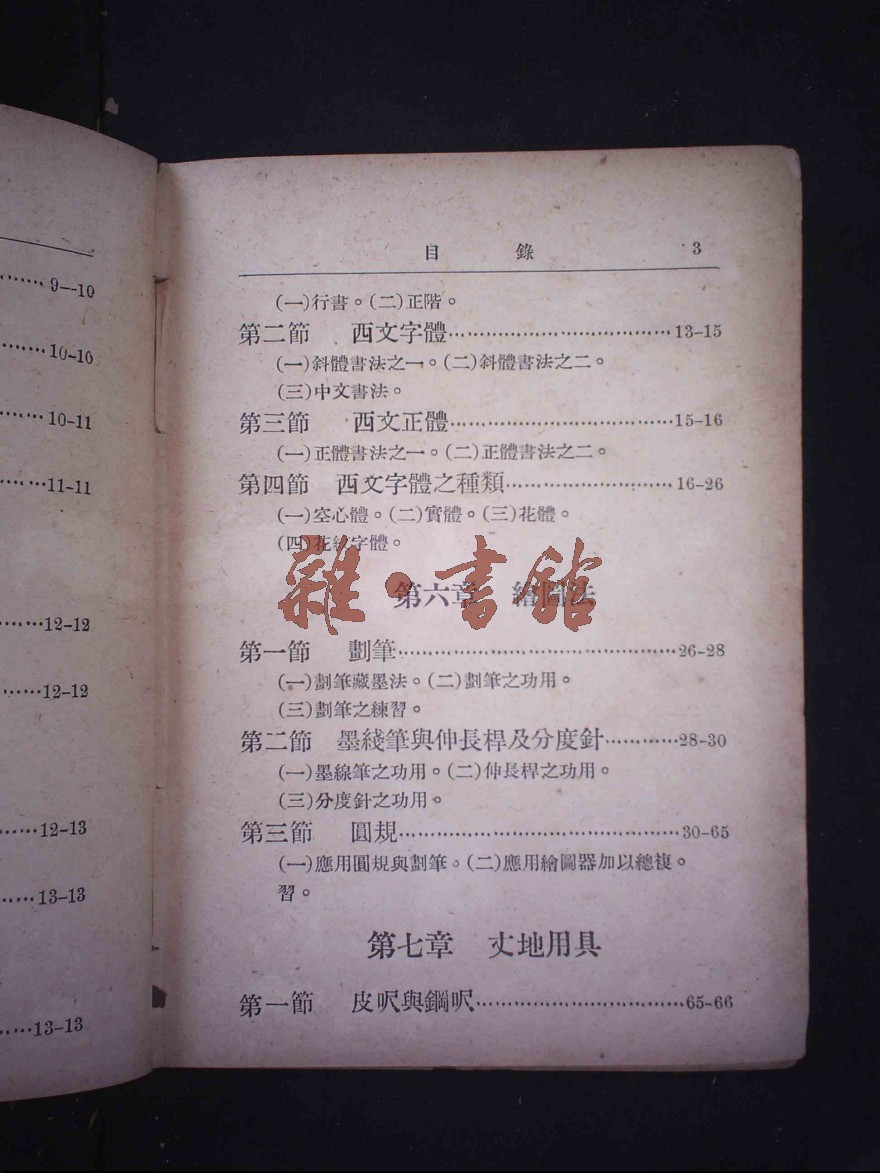 9—10
10-10
10-11
11-11
12-12
12-12
12-13
13-13
13-13
目　錄　3
(一)行書。(二)正階。
第二節　西文字體……………………………13-15
(一)斜體書法之一。(二)斜體書法之二。
(三)中文書法。
第三節　西文正體……………………………15-16
(一)正體書法之一。(二)正體書法之二。
第四節　西文字體之種類……………………16-26
(一)空心體。(二)實體。(三)花體。
(四)花紋字體。
雜·書館
第六章　繪圖法
第一節　劃筆…………………………………26-28
(一)劃筆藏墨法。(二)劃筆之功用。
(三)劃筆之練習。
第二節　墨綫筆與伸長桿及分度針…………28-30
(一)墨線筆之功用。(二)伸長桿之功用。
(三)分度針之功用。
第三節　圓規…………………………………30-65
(一)應用圓規與劃筆。(二)應用繪圖器加以總複。
習。
第七章　丈地用具
第一節　皮呎與鋼呎…………………………65-66